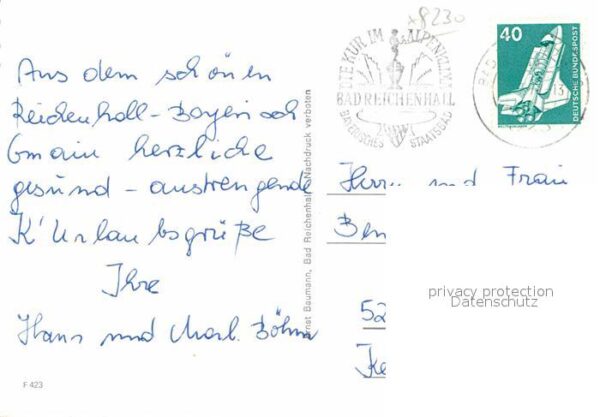 x8230
GUTE KUR IM ALPENKLIMA
BAD REICHENHALL
BAYERISCHES STAATSBAD
40
DEUTSCHE BUNDESPOST
BAD
13
Aus dem schönen
Reichenhall-Bayerisch
Gmain herzliche
gesund-anstrengende
K'Urlaubsgrüße
Ihre
Hans und Böhm
Nachdruck verboten
Ernst Baumann, Bad Reichenhall
Herrn und Frau
Ben
52
Ke
privacy protection
Datenschutz
F 423